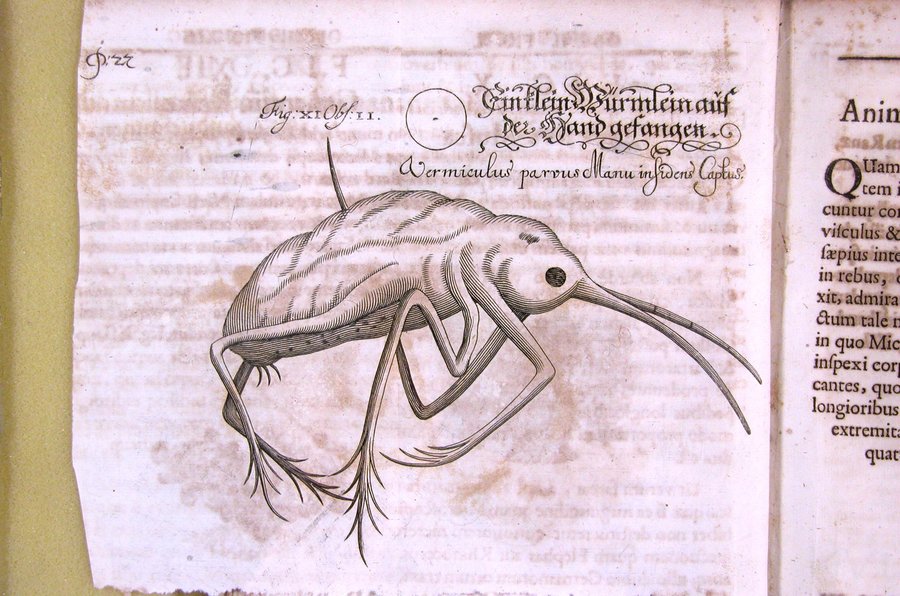 P. 22
Fig: XI Obs: II.
Ein klein Würmlein auf
der Hand gefangen.
Vermiculus parvus Manu insidens Captus.
Anim
QUam
tem i
cuntur cor
viſculus &
ſæpius inte
in rebus,
xit, admira
ctum tale
in quo Mic
inſpexi corp
cantes, quo
longioribus
extremita
quat